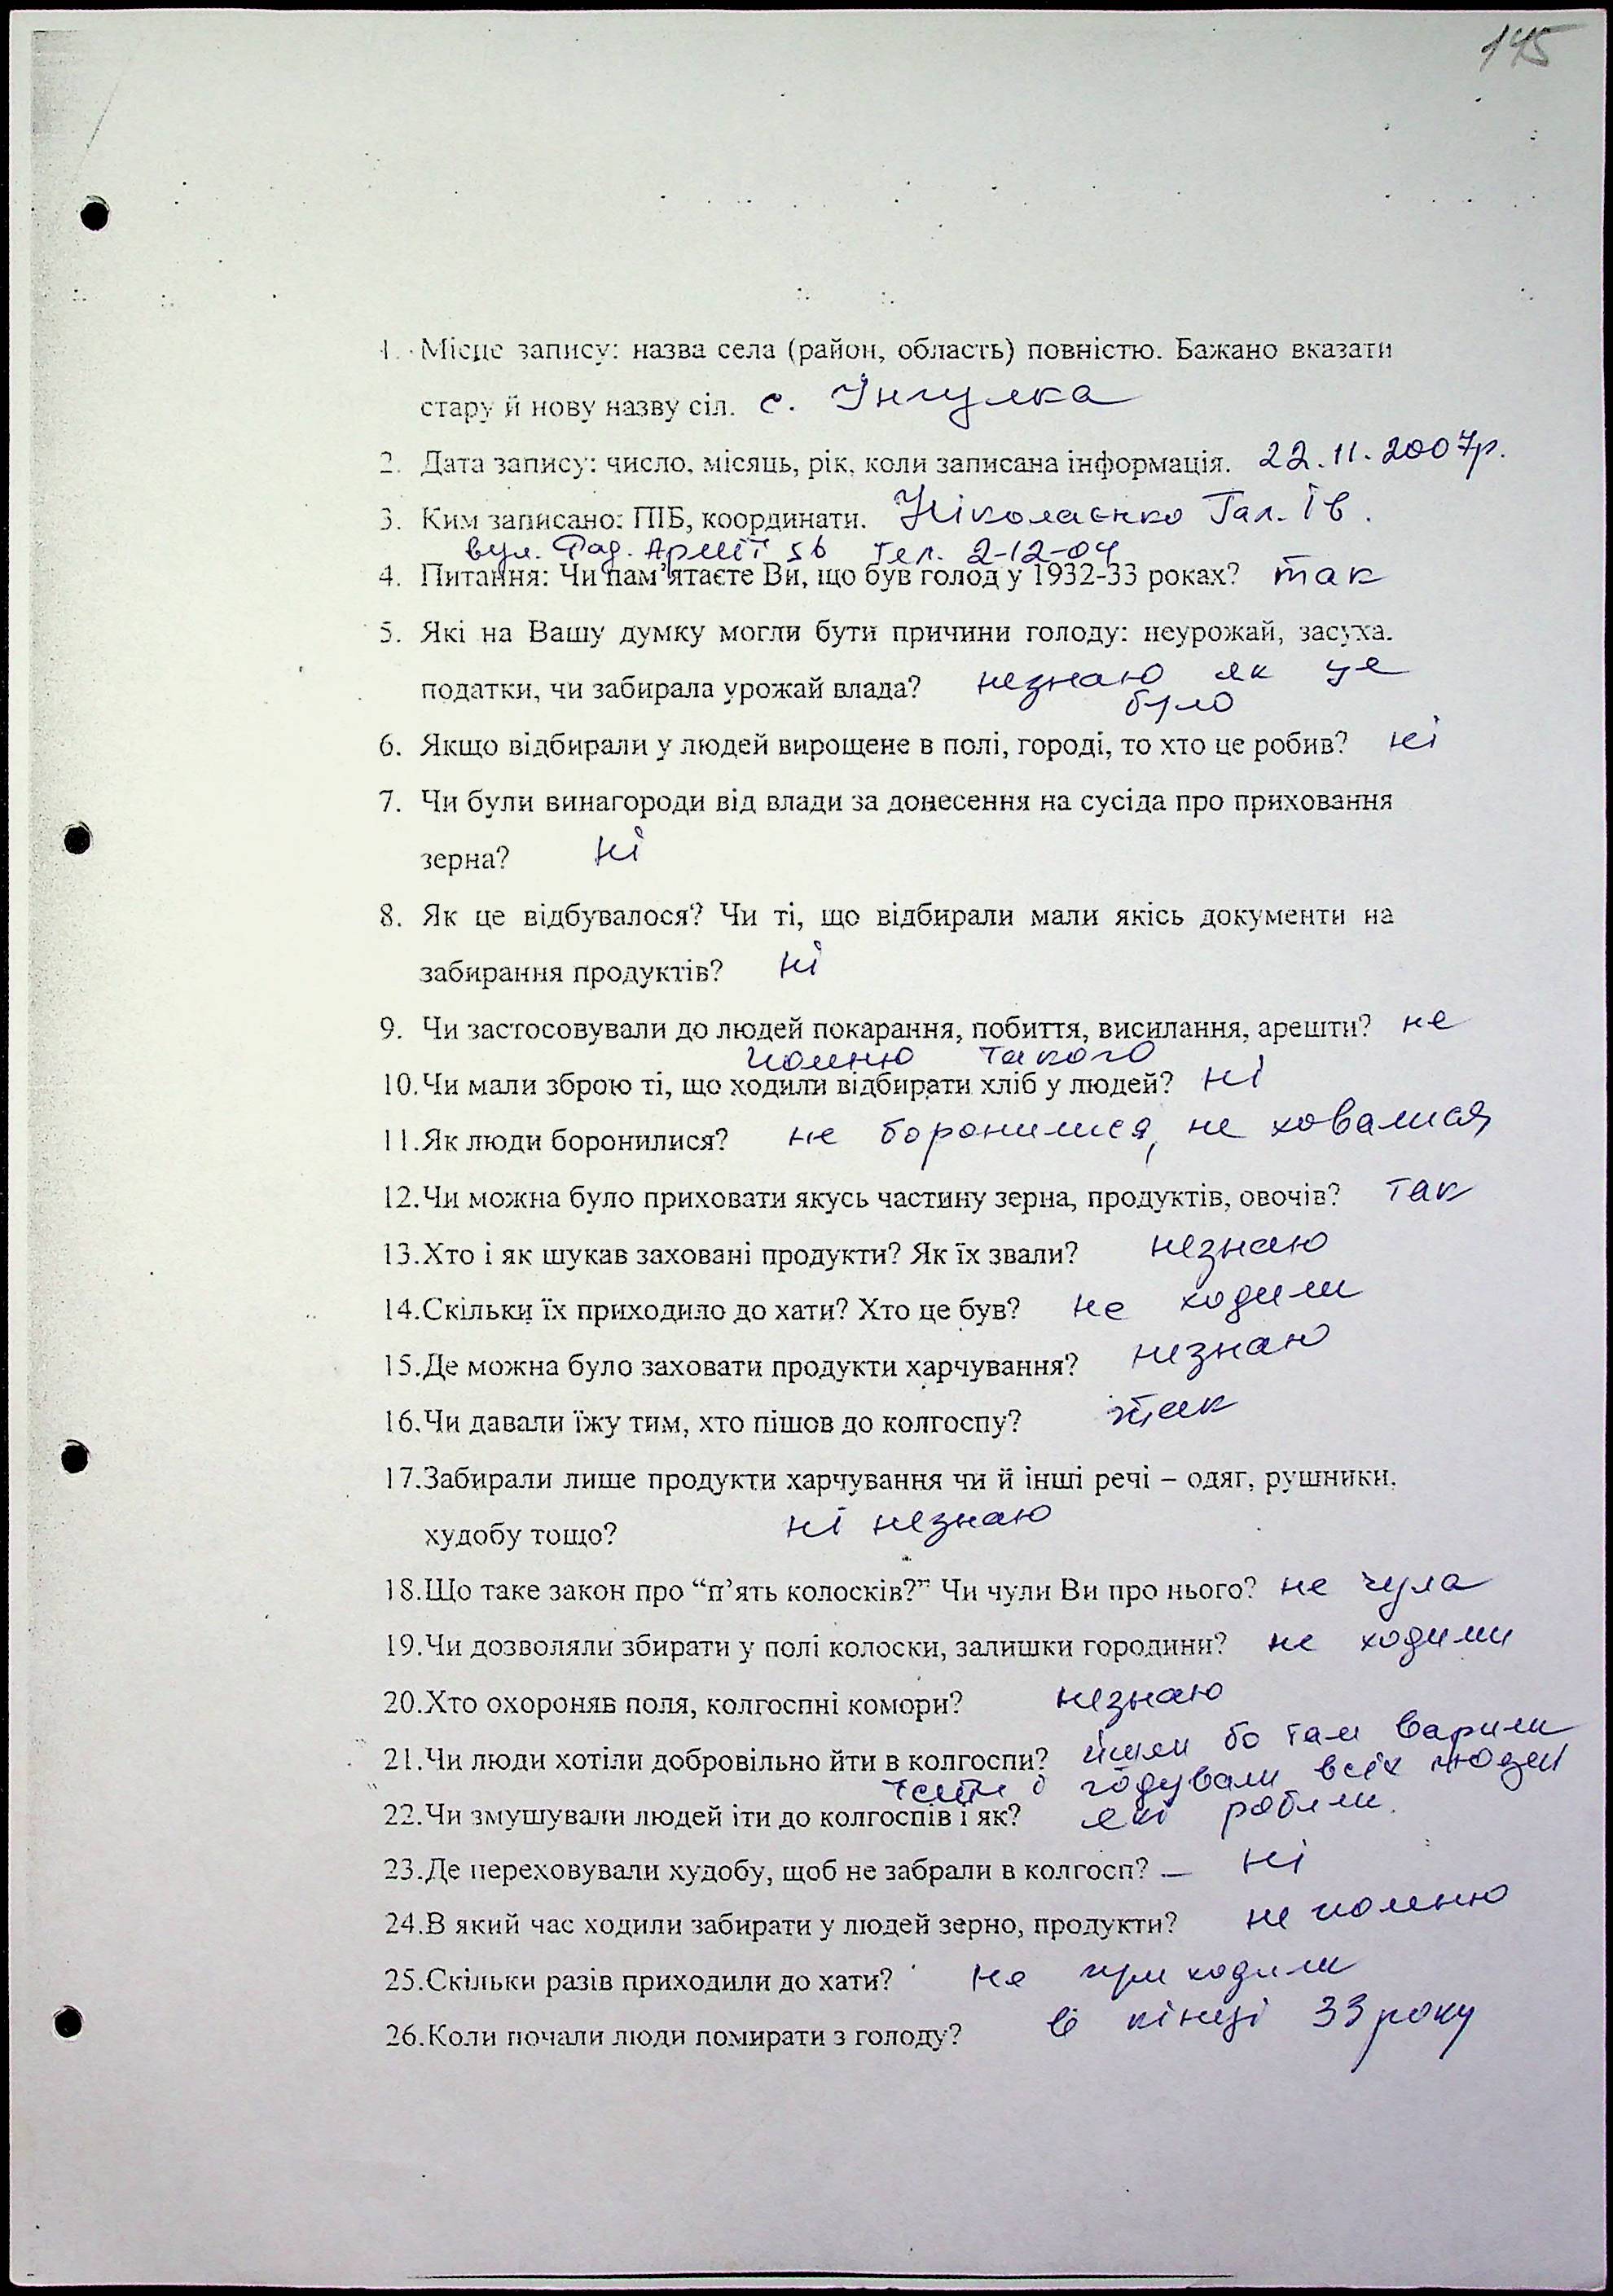 145
1. Місце запису: назва села (район, область) повністю. Бажано вказати
стару й нову назву сіл. с. Інгулка
2. Дата запису: число, місяць, рік, коли записана інформація. 22.11.2007р.
3. Ким записано: ПІБ, координати. Ніколаєнко Гал. Ів.
вул. Рад. Армії 56 тел. 2-12-04
4. Питання: Чи пам’ятаєте Ви, що був голод у 1932-33 роках? так
5. Які на Вашу думку могли бути причини голоду: неурожай, засуха.
податки, чи забирала урожай влада? незнаю як це
було
6. Якщо відбирали у людей вирощене в полі, городі, то хто це робив? ні
7. Чи були винагороди від влади за донесення на сусіда про приховання
зерна? ні
8. Як це відбувалося? Чи ті, що відбирали мали якісь документи на
забирання продуктів? ні
9. Чи застосовували до людей покарання, побиття, висилання, арешти? не
помню такого
10. Чи мали зброю ті, що ходили відбирати хліб у людей? ні
11. Як люди боронилися? не боронилися, не ховалися
12. Чи можна було приховати якусь частину зерна, продуктів, овочів? так
13. Хто і як шукав заховані продукти? Як їх звали? незнаю
14. Скільки їх приходило до хати? Хто це був? не ходили
15. Де можна було заховати продукти харчування? незнаю
16. Чи давали їжу тим, хто пішов до колгоспу? так
17. Забирали лише продукти харчування чи й інші речі – одяг, рушники.
худобу тощо? ні незнаю
18. Що таке закон про “п’ять колосків?” Чи чули Ви про нього? не чула
19. Чи дозволяли збирати у полі колоски, залишки городини? не ходили
20. Хто охороняв поля, колгоспні комори? незнаю
21. Чи люди хотіли добровільно йти в колгоспи? йшли бо там варили
їсти і годували всіх людей
22. Чи змушували людей іти до колгоспів і як? які робили.
23. Де переховували худобу, щоб не забрали в колгосп? – ні
24. В який час ходили забирати у людей зерно, продукти? не помню
25. Скільки разів приходили до хати? не приходили
26. Коли почали люди помирати з голоду? в кінці 33 року